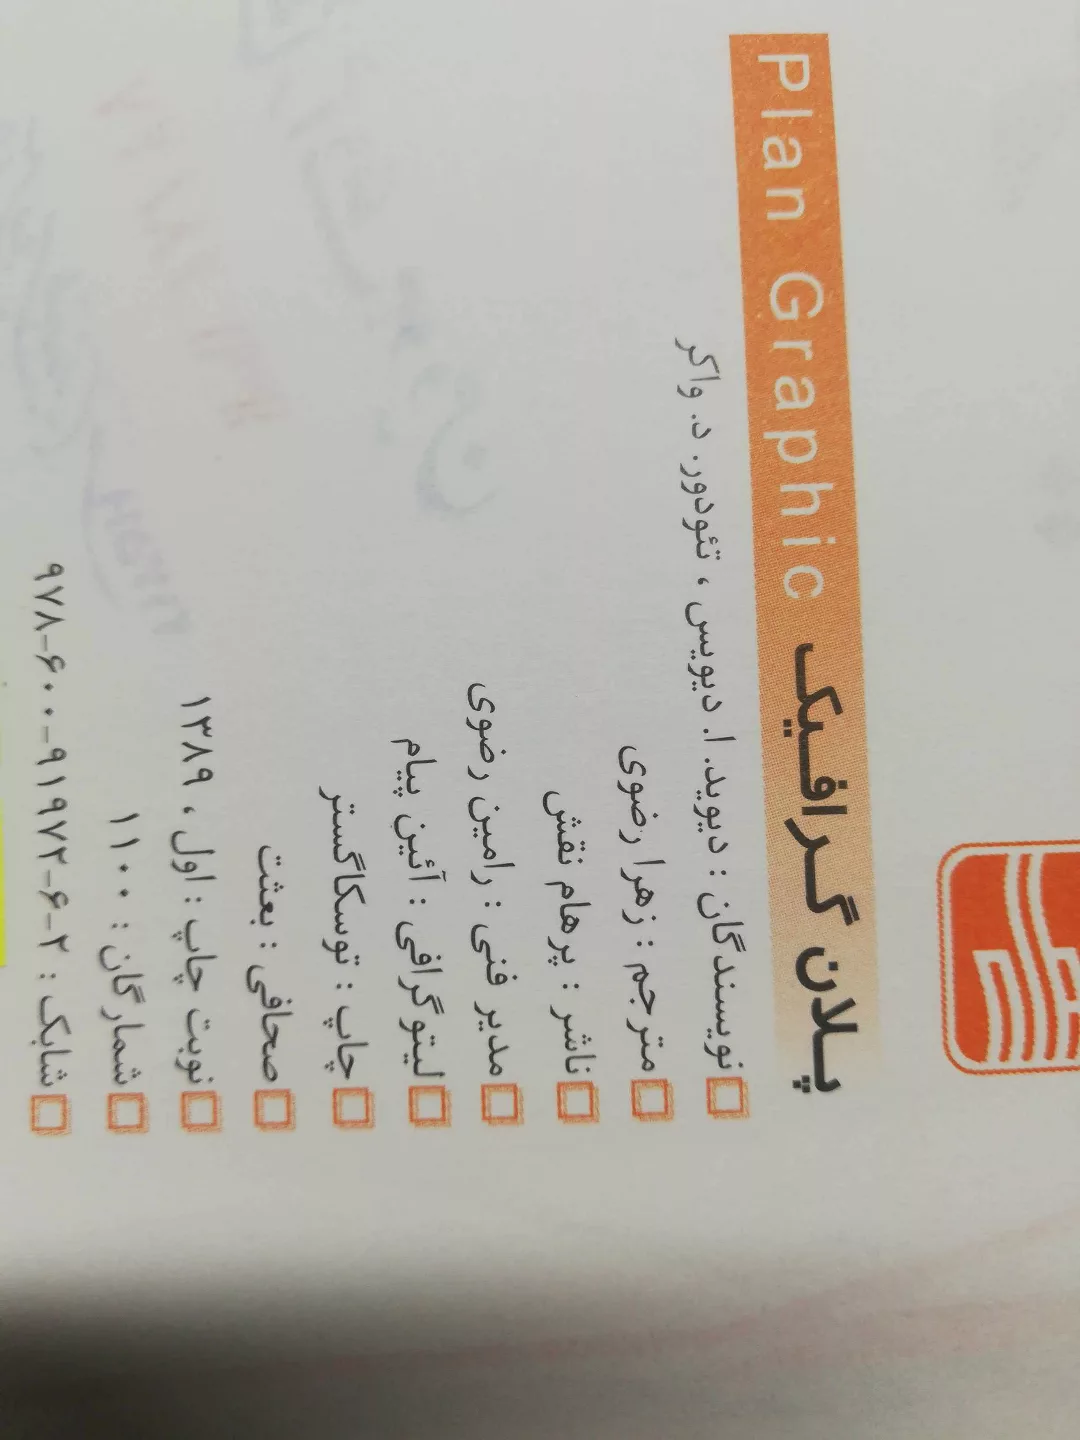 Plan Graphic پلان گرافیک
نویسندگان : دیوید. ا. دیویس ، تئودور. د. واکر
مترجم : زهرا رضوی
ناشر : پرهام نقش
مدیر فنی : رامین رضوی
لیتوگرافی : آئین پیام
چاپ : توسکاگستر
صحافی : بعثت
نوبت چاپ : اول ، ۱۳۸۹
شمارگان : ۱۱۰۰
شابک : ۲-۶-۹۱۹۷۲-۶۰۰-۹۷۸